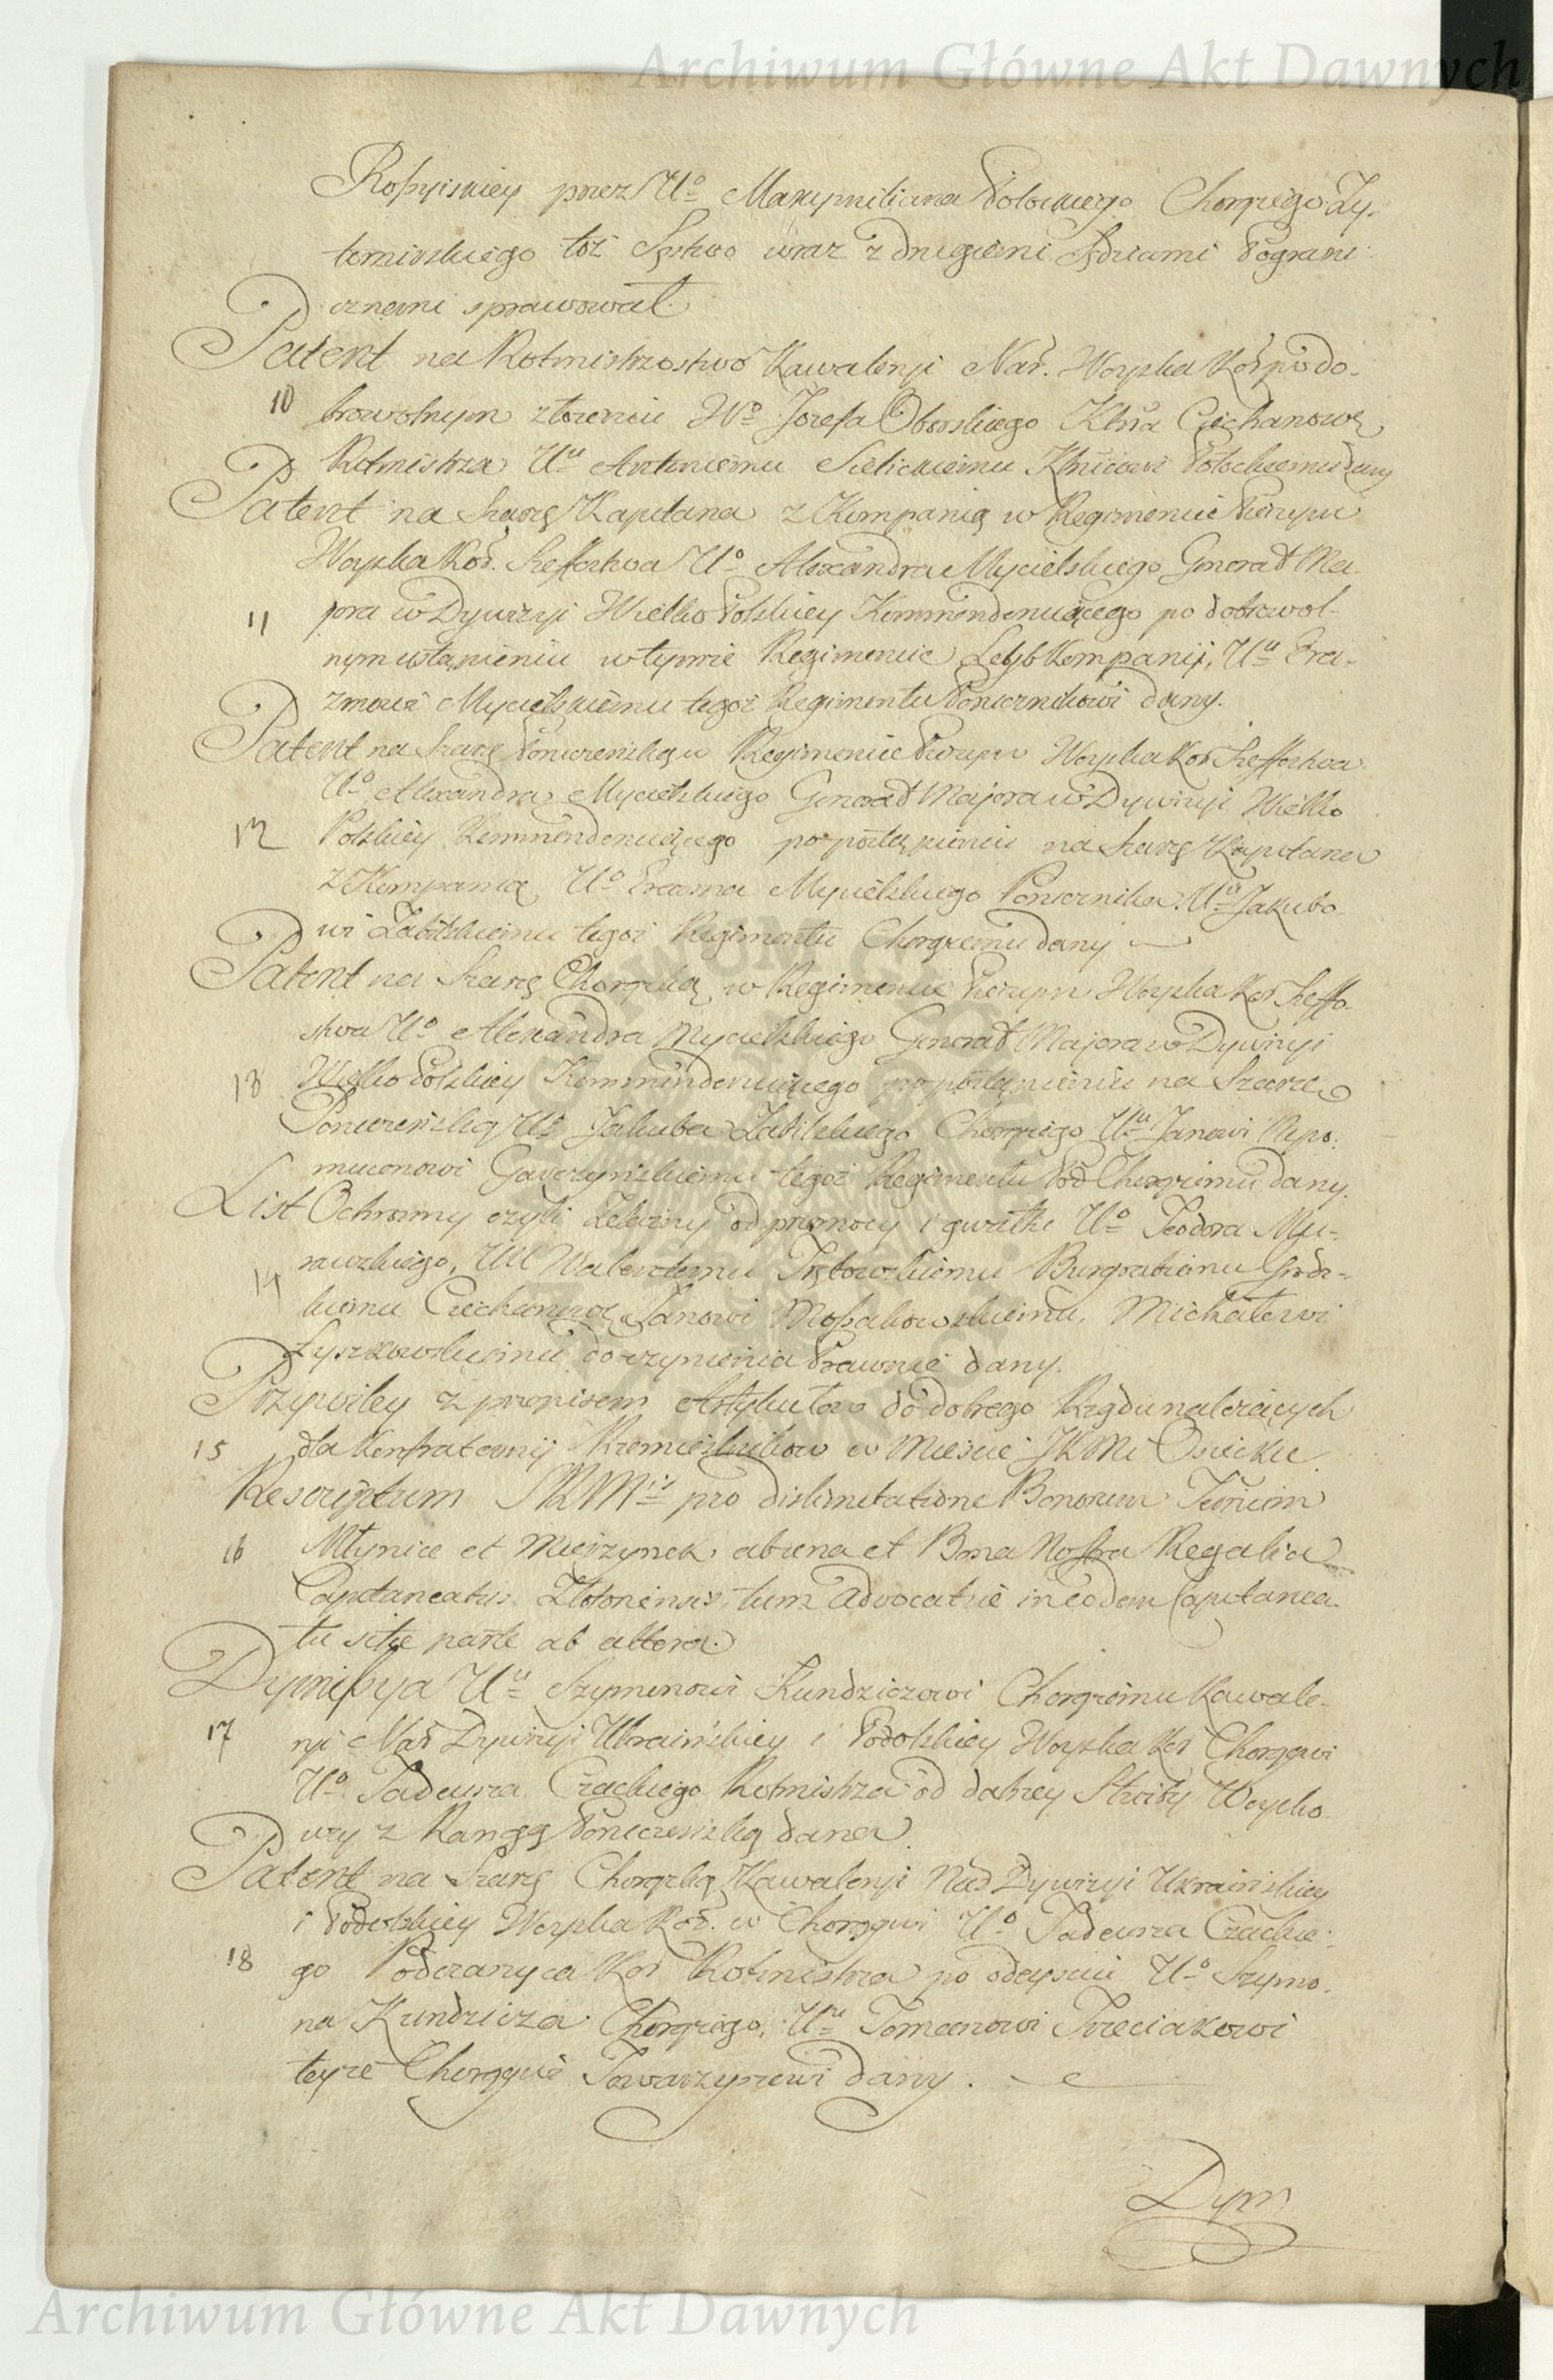 Archiwum Główne Akt Dawnych
Roſsyiskiey przez Uo Maxymiliana Potockiego Chorążego Ży-
tomirskiego toż Sęstwo wraz z drugiemi Sędziami Pograni-
cznemi sprawował
Patent na Rotmistrzostwo Kawaleryi Nar. Woyska Kor po do-
10 browolnym złożeniu Wo Jozefa Oborskiego Kltna Ciechanow
Rotmistrza Uu Antoniemu Sielickiemu Kltnicowi Połockiemu dany
Patent na Szarżę Kapitana z Kompanią w Regimencie Pieszym
Woyska Kor. Szeffostwa Uo Alexandra Mycielskiego Generał Ma-
11 jora w Dywizyi Wielko Polskiey Kommenderuiącego po dobrowol-
nym ustąpieniu w tymże Regimencie Leyb Kompanij, Uu Era-
zmowi Mycielskiemu tegoż Regimentu Porucznikowi dany.
Patent na Szarżę Poruczeńską w Regimencie Pieszym Woyska Kor Szeffostwa
Uo Alexandra Mycielskiego Generał Majora w Dywizyi Wielko
12 Polskiey Kommenderuiącego po postąpieniu na Szarżę Kapitana
z Kompanią Uo Erazma Mycielskiego Porucznika. Uu Jakubo-
wi Zabilskiemu tegoż Regimentu Chorążemu dany
Patent na Szarżę Chorążką w Regimencie Pieszym Woyska Kor Szeffo-
stwa Uo Alexandra Mycielskiego Generał Majora w Dywizyi
13 Wielko Polskiey Kommenderuiącego po postąpieniu na Szarże
Poruczeńską Uo Jakuba Zabilskiego Chorążego Uu Janowi Nepo-
mucenowi Gaworzyńskiemu tegoż Regimentu Pod Chorążemu dany.
List Ochronny czyli Żelazny od przemocy i gwałtu Uo Teodora Mu-
rawskiego, UU Walentemu Trętowskiemu Burgrabiemu Grodz-
14 kiemu Ciechanow, Janowi Moſsakowskiemu, Michałowi
Łyszkowskiemu do czynienia Prawnie dany.
Przywiley z przepisem Artykułow do dobrego Rządu należących
15 dla Konfraternij Rzemieślnikow w Mieście JKMci Osiecku
Rescriptum SRMtis pro dislimitatione Bonorum
16 Młynice et Mierzynek, ab una et Bona Nostra Regalia
Capitaneatus Złotoriensis, tum Advocatiæ in eodem Capitanea-
tu sitæ parte ab altera.
Dymiſsya Uu Szymonowi Kundziczowi Chorążemu Kawale-
17 ryi Nar Dywizyi Ukraińskiey i Podolskiey Woyska Kor Chorągwi
Uo Tadeusza Czackiego Rotmistrza od dalszey Służby Woysko-
wey z Rangą Poruczeńską dana
Patent na Szarżę Chorążką Kawaleryi Nar Dywizyi Ukraińskiey
i Podolskiey Woyska Kor. w Chorągwi Uo Tadeusza Czackie-
18 go Podczaszyca Kor Rotmistrza po odeyściu Uo Szymo-
na Kundzicza Chorążego, Uu Tomaszowi Trzeciakowi
teyże Chorągwi Towarzyszowi dany.
Dym
Archiwum Główne Akt Dawnych